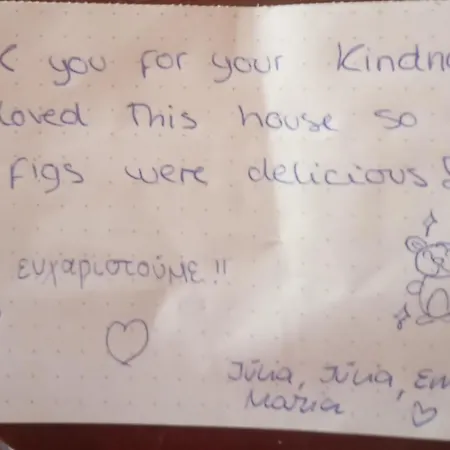 you for your
loved This house so
Figs were delicious!
ευχαριστούμε!!
Júlia, Júlia,
Maria